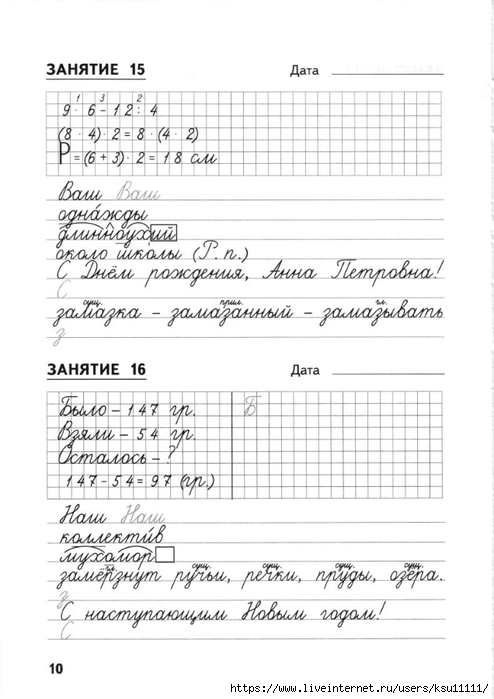 ЗАНЯТИЕ 15 Дата
1 3 2
9 · 6 - 12 : 4
(8 · 4) · 2 = 8 · (4 · 2)
P = (6 + 3) · 2 = 18 см
Ваш Ваш
одна́жды
длинноухий
около школы (Р. п.)
С Днём рождения, Анна Петровна!
С
сущ. прил. гл.
замазка – замазанный – замазывать
з
ЗАНЯТИЕ 16 Дата
Было – 147 гр. Б
Взяли – 54 гр.
Осталось – ?
147 - 54 = 97 (гр.)
Наш Наш
коллекти́в
мухомор
гл. сущ. сущ. сущ. сущ.
замёрзнут ручьи, речки, пруды, озёра.
з
С наступающим Новым годом!
С
10
https://www.liveinternet.ru/users/ksu11111/